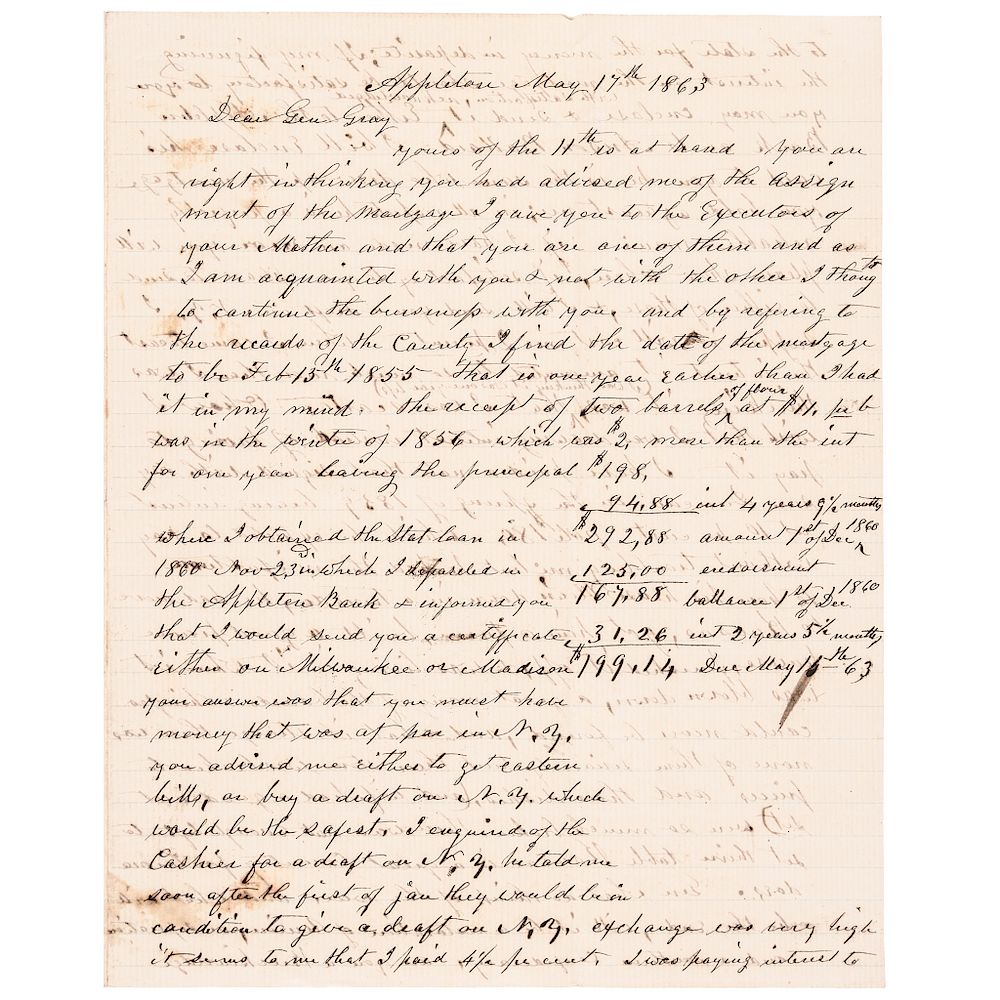 Appleton May 17th 1863
Dear Gen Gray
yours of the 11th is at hand you are
right in thinking you had advised me of the assign
ment of the Mortgage I gave you to the Executors of
your Mother and that you are one of them and as
I am acquainted with you & not with the other I thought
to continue the business with you. and by refering to
the records of the County I find the date of the mortgage
to be Feb 15th 1855 that is one year earlier than I had
it in my mind. the receipt of two barrels of flour at $11. per b
was in the winter of 1856 which was $2, more than the int
for one year leaving the principal $198,
94,88 int 4 years 9½ months
where I obtained the Stat loan in $292,88 amount 1st of Dec 1860
1860 Nov 23rd in which I deposited in 125,00 endorsment
the Appleton Bank & informed you 167,88 ballance 1st of Dec 1860
that I would send you a certificate 31,26 int 2 years 5½ months
either on Milwaukee or Madison $199,14 Due May 15th 63
your answer was that you must have
money that was at par in N.Y.
you advised me either to get eastern
bills, or buy a draft on N.Y. which
would be the safest. I enquired of the
Cashier for a draft on N.Y. he told me
soon after the first of jan they would be in
condition to give a draft on N.Y. exchange was very high
it seems to me that I paid 4½ per cent. I was paying interest to